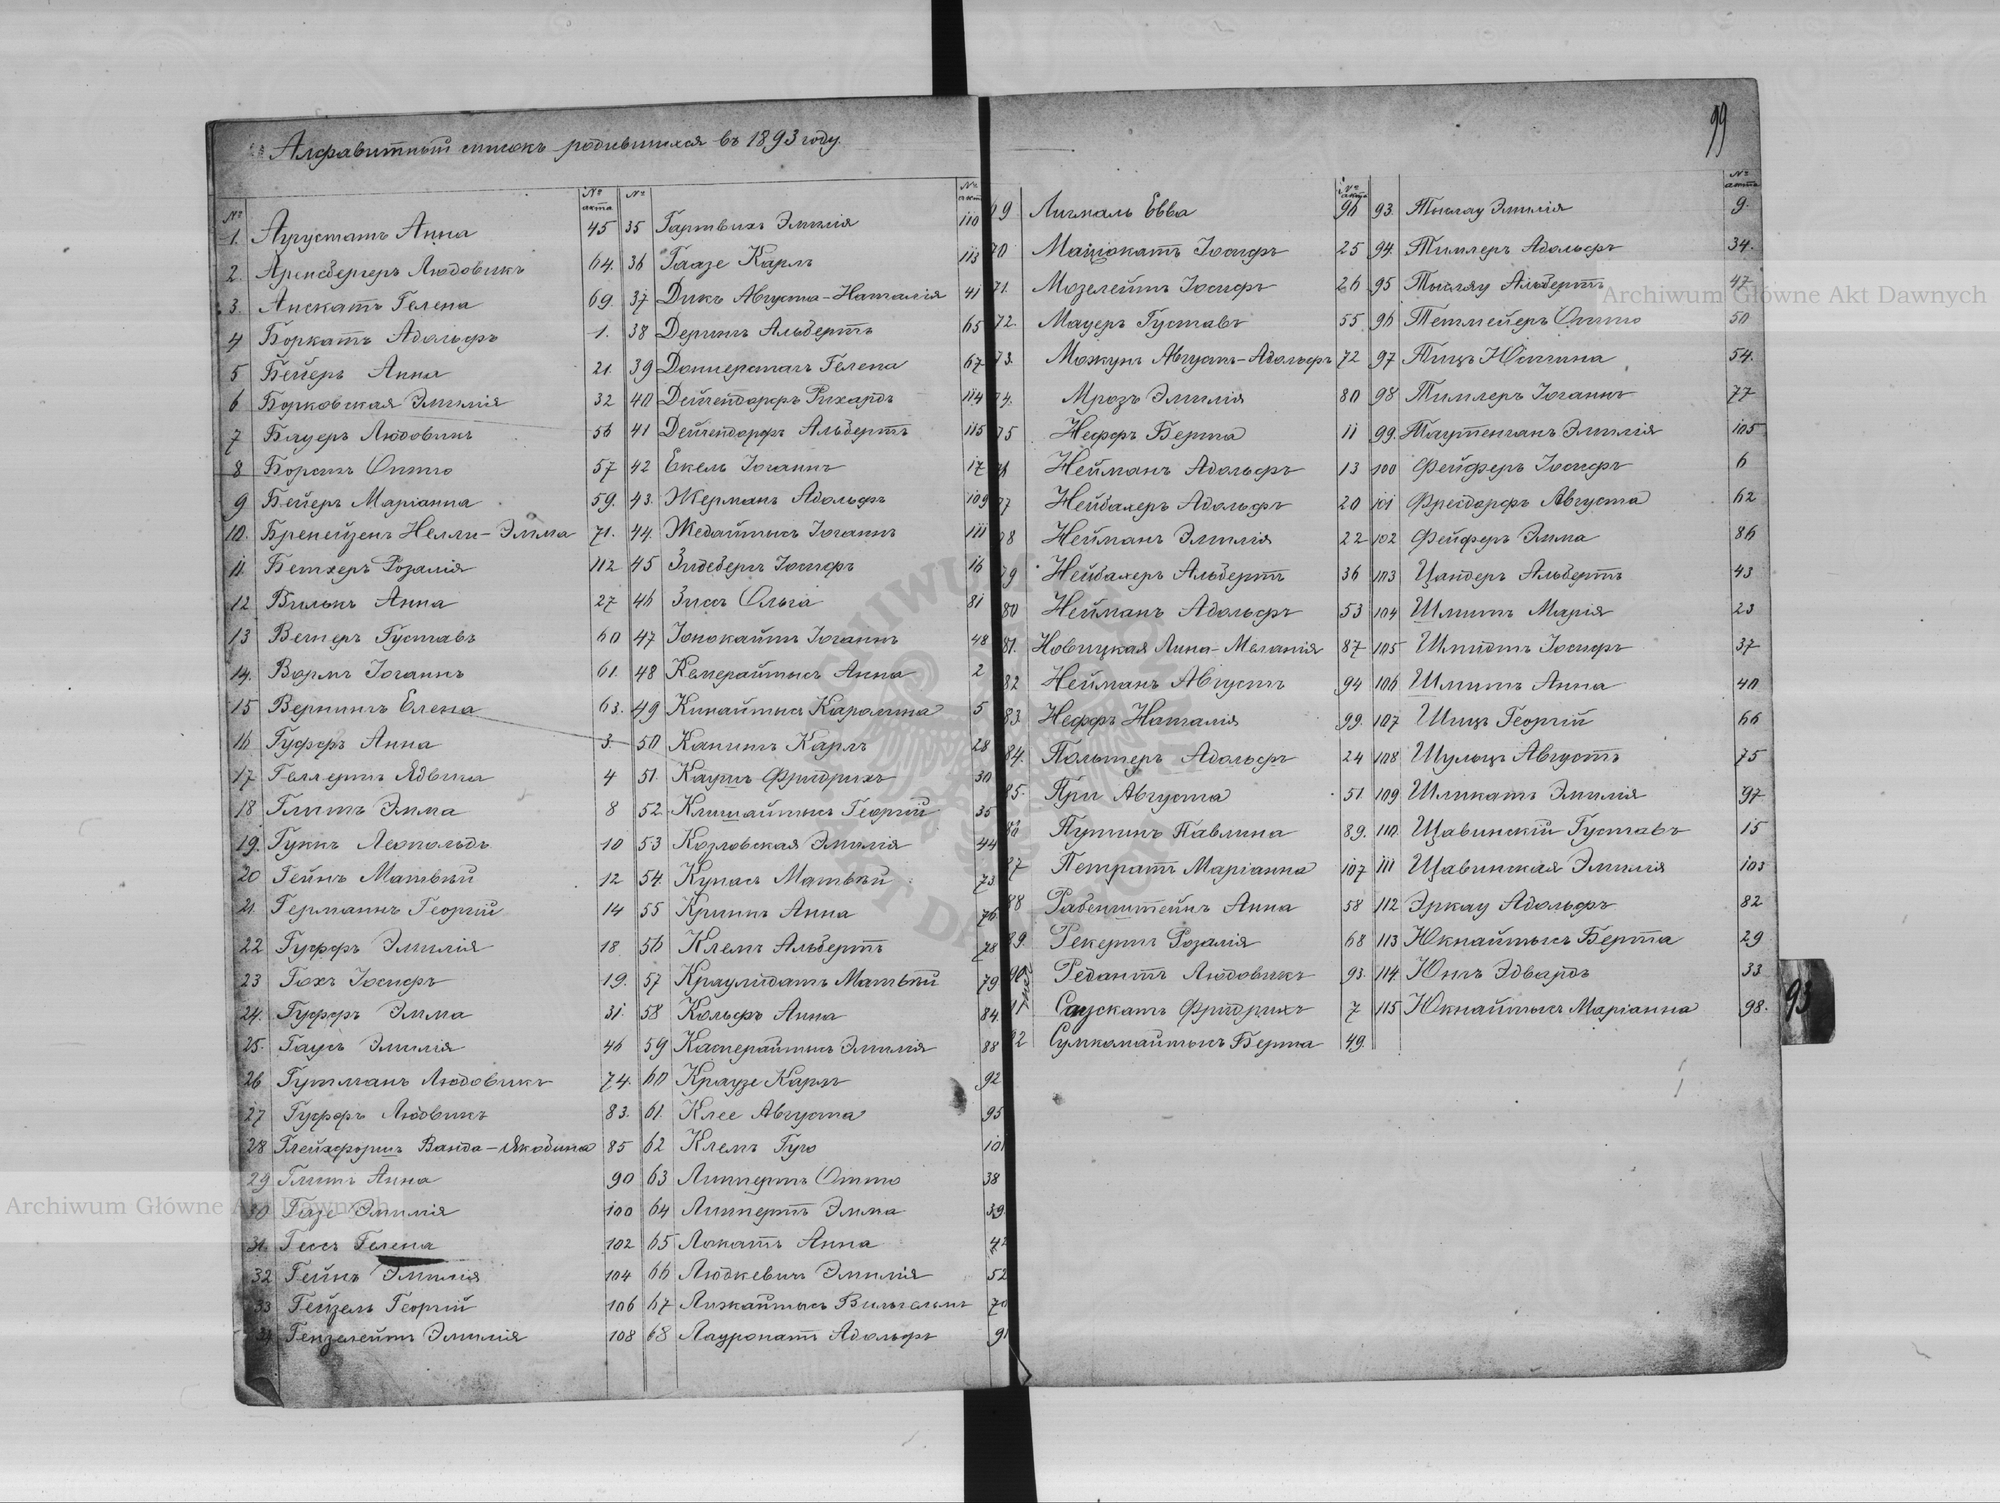 99
Алфавитный списокъ родившихся въ 1893 году.
№ № акта
1. Аугустатъ Анна 45
2. Аренсбергеръ Людовикъ 64.
3. Анскатъ Гелена 69.
4 Боркатъ Адольфъ 1.
5 Бейеръ Анна 21.
6 Борковская Эмилія 32
7 Бауеръ Людовикъ 56
8 Борхтъ Оттто 57
9 Бейеръ Маріанна 59.
10. Бренейзенъ Нелли-Эмма 71.
11. Беткеръ Розалія 112
12 Вилькъ Анна 27
13 Вегнеръ Густавъ 60
14. Вормъ Іоганнъ 61.
15 Вернингъ Елена 63.
16 Гуффъ Анна 3.
17 Геллертъ Ядвига 4
18 Глитъ Эмма 8
19. Гукнъ Леопольдъ 10
20 Гейнъ Матвѣй 12
21. Германнъ Георгій 14
22 Гуффъ Эмилія 18
23 Гохъ Іосифъ 19.
24. Гуффъ Эмма 31.
25. Гаусъ Эмилія 46
26 Гутманъ Людовикъ 74.
27 Гуффъ Людвикъ 83.
28 Глейхфоршъ Ванда-Якобина 85
29 Глитъ Анна 90
30 Газе Эмилія 100
31. Гессъ Гелена 102
32 Гейнъ Эмилія 104
33 Гейзель Георгій 106
34 Гензелейтъ Эмилія 108
№ № акта
35 Гартвихъ Эмилія 110
36 Гаазе Карлъ 113
37 Дикъ Августа-Наталія 41
38 Дерингъ Альбертъ 65
39 Доннерстагъ Гелена 67
40 Дейгендорфъ Рихардъ 114
41 Дейгендорфъ Альбертъ 115
42 Екель Іоганнъ 17
43. Жерманъ Адольфъ 109
44. Жедайтисъ Іоганнъ 111
45 Зидебергъ Іосифъ 16
46 Зиссъ Ольга 81
47 Іонокайтъ Іоганнъ 48
48 Кемерайтисъ Анна 2
49 Кинайтисъ Каролина 5
50 Капингъ Карлъ 28
51. Каушъ Фридрихъ 30
52 Клишайтисъ Георгій 35
53 Козловская Эмилія 44
54. Купасъ Матвѣй 73
55 Криннъ Анна 76
56 Клемъ Альбертъ 78
57 Краулидатъ Матвѣй 79
58 Кольфъ Анна 84
59 Касперайтисъ Эмилія 88
60 Краузе Карлъ 92
61. Клее Августа 95
62 Клемъ Гуго 101
63 Липпертъ Оттто 38
64 Липпертъ Эмма 39.
65 Локатъ Анна 42
66 Людкевичъ Эмилія 52
67 Лижайтисъ Вильгельмъ 70
68 Лауропатъ Адольфъ 91
№ акта
69 Лигмаль Евва 96
70 Мацокатъ Іосифъ 25
71. Мозелейтъ Іосифъ 26
72. Мауеръ Густавъ 55
73. Можунъ Августъ-Адольфъ 72
74. Мрозъ Эмилія 80
75 Неффъ Берта 11
76 Нейманъ Адольфъ 13
77 Нейбахеръ Адольфъ 20
78 Нейманъ Эмилія 22
79 Нейбахеръ Альбертъ 36
80 Нейманъ Адольфъ 53
81. Новицкая Лина-Меланія 87
82 Нейманъ Августъ 94
83. Неффъ Наталія 99.
84. Польтеръ Адольфъ 24
85. При Августа 51
86 Путинъ Павлина 89.
87 Петратъ Маріанна 107
88 Рабенштейнъ Анна 58
89. Рекертъ Розалія 68
90. Редантъ Людовикъ 93.
91 Саускатъ Фридрихъ 7
92 Сумкомайтисъ Берта 49.
№ акта
93. Тылау Эмилія 9.
94. Тиллеръ Адольфъ 34.
95 Тылау Альбертъ 47
96 Тетмейеръ Оттто 50
97 Тицъ Юстина 54.
98 Тиллеръ Іоганнъ 77
99. Таутенганъ Эмилія 105
100 Фейферъ Іосифъ 6
101 Фрейдорфъ Августа 62
102 Фейферъ Эмма 86
103 Цандеръ Альбертъ 43
104 Шмитъ Марія 23
105 Шмидтъ Іосифъ 37
106 Шмитъ Анна 40
107 Шицъ Георгій 66
108 Шульцъ Августъ 75
109 Шликатъ Эмилія 97
110. Щавинскій Густавъ 15
111 Щавинская Эмилія 103
112 Эркау Адольфъ 82
113 Юкнайтисъ Берта 29
114. Юнгъ Эдвардъ 33
115 Юкнайтисъ Маріанна 98.
93
Archiwum Główne Akt Dawnych
Archiwum Główne Akt Dawnych